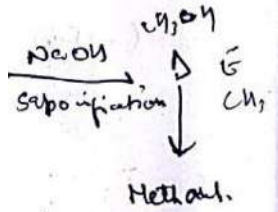 CH3OH
NaOH
Saponification
Δ
CH3
Methanol.